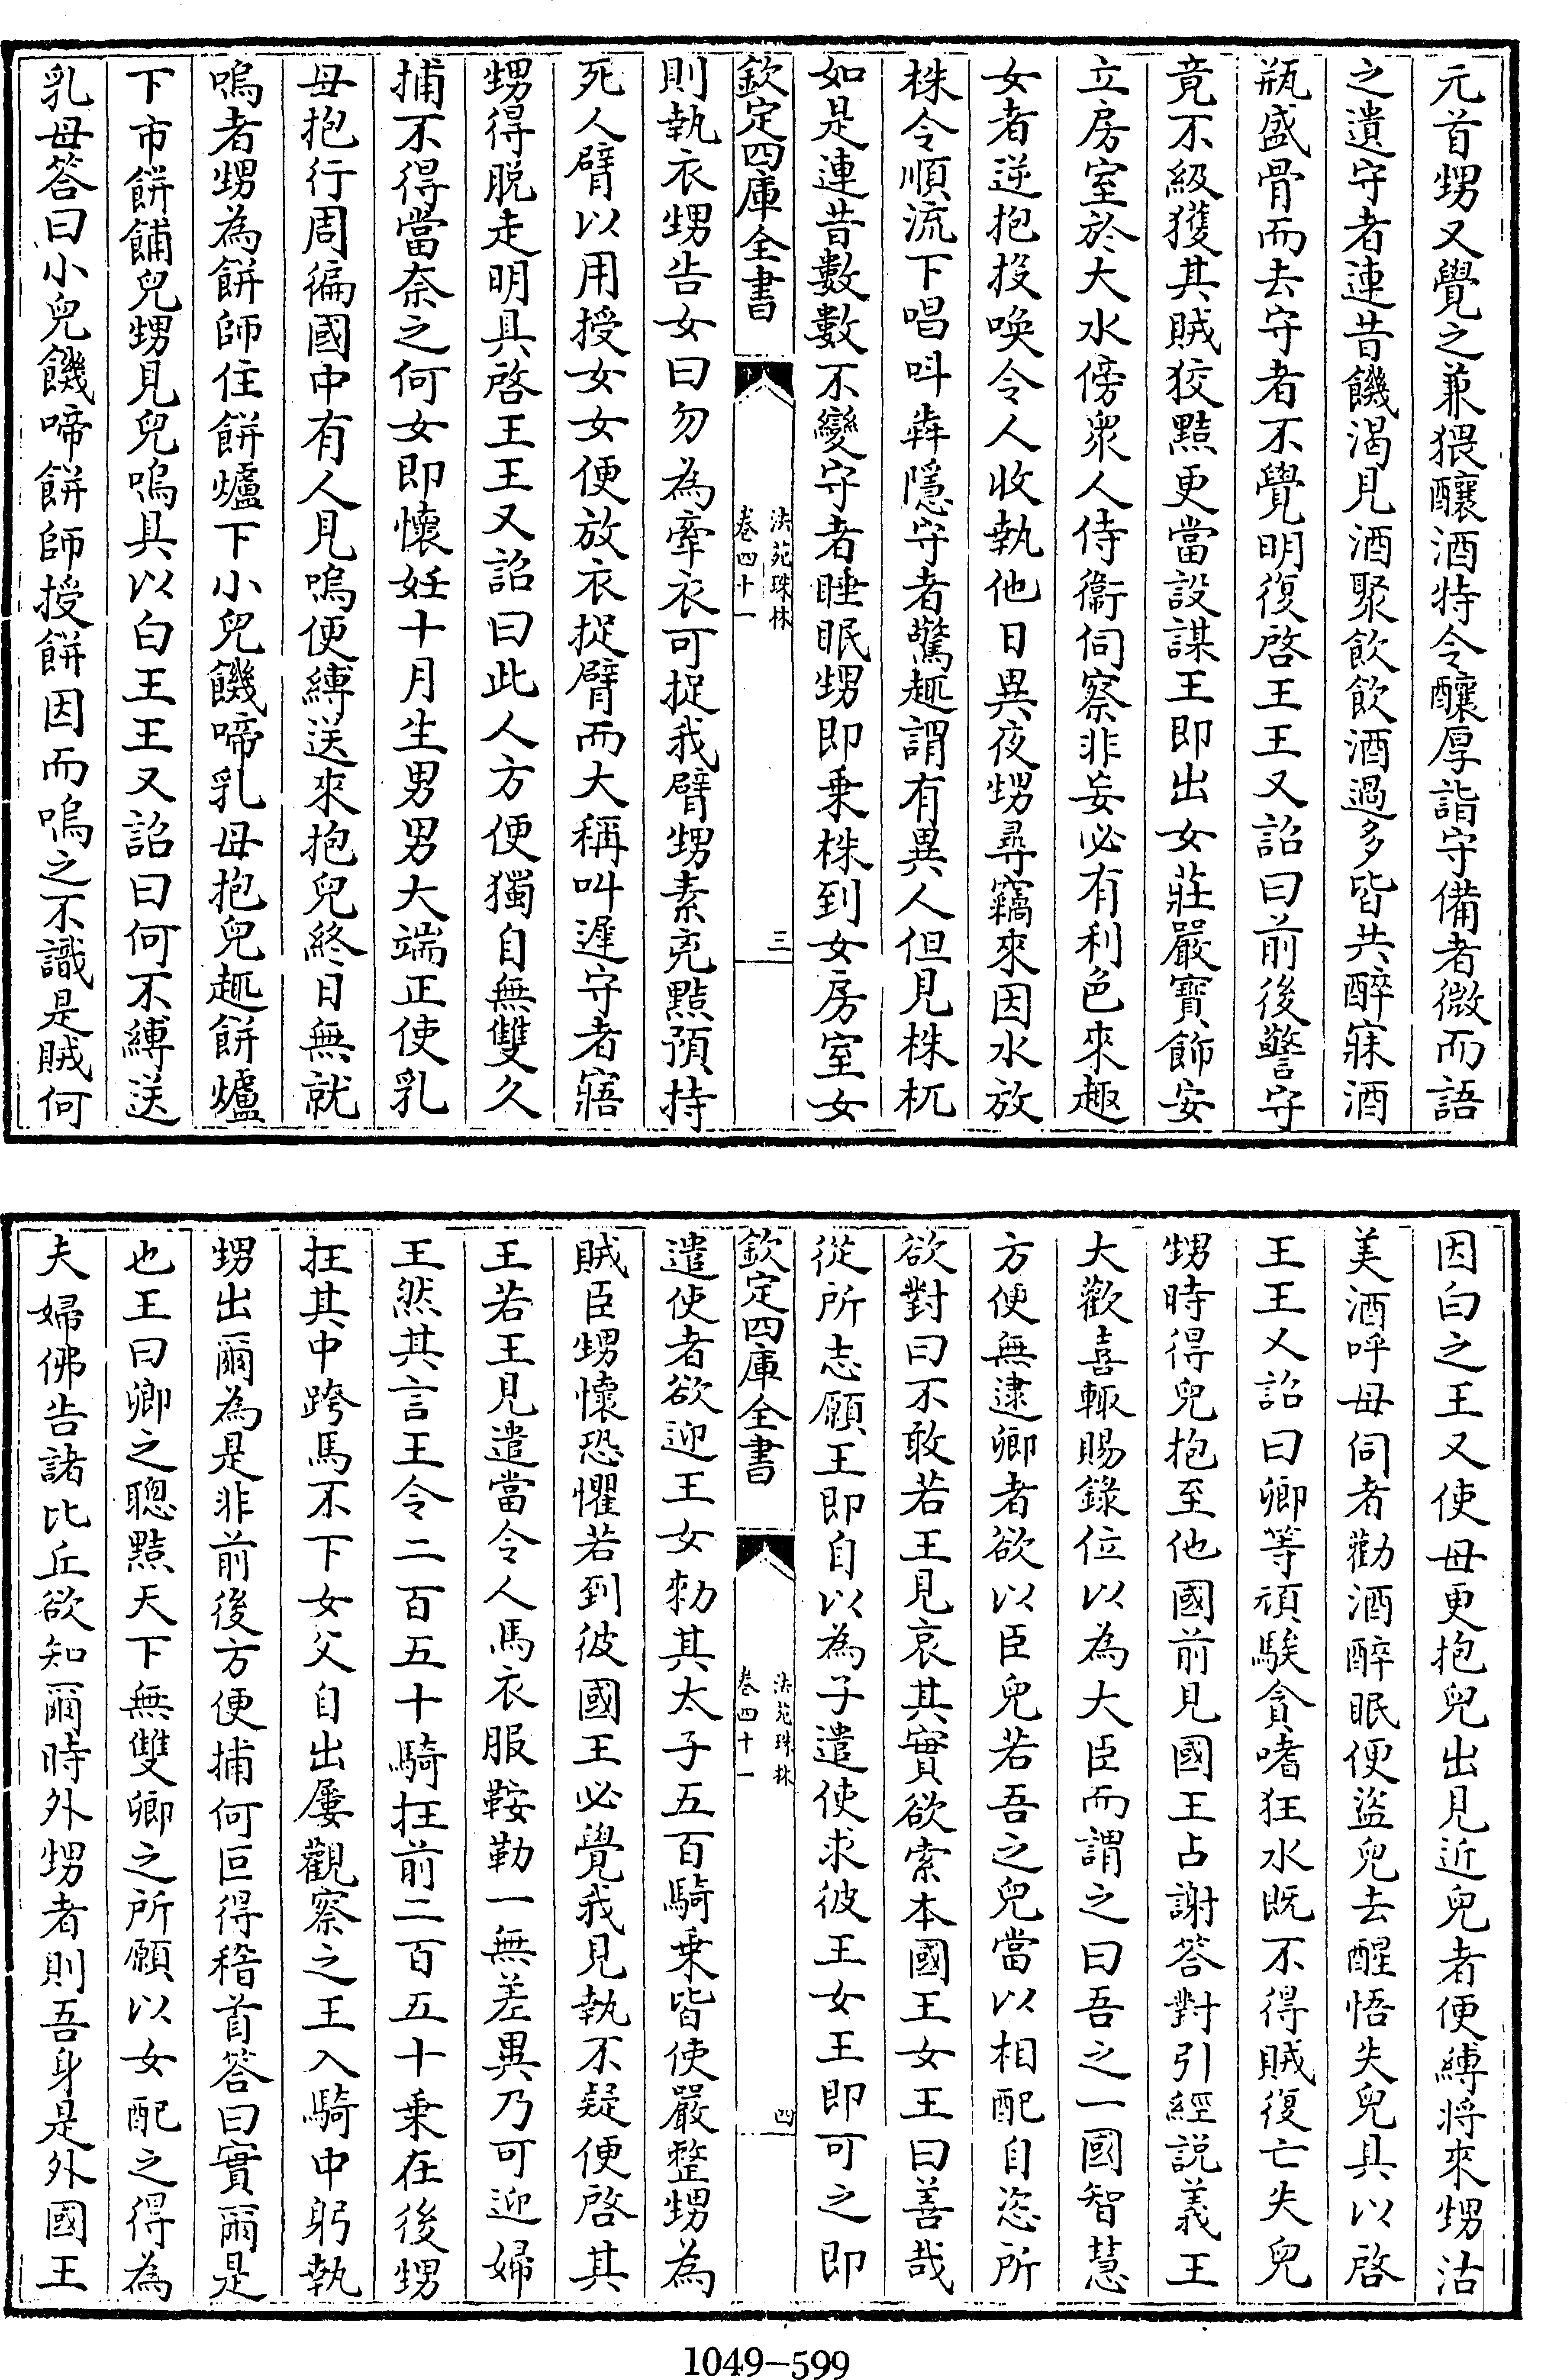 元首甥又覺之兼猥釀酒特令釀厚詣守備者微而語
之遺守者連昔饑渴見酒聚飲飲酒過多皆共醉寐酒
瓶盛骨而去守者不覺明復啓王王又詔曰前後警守
竟不級獲其賊狡黠更當設謀王即出女莊嚴寶飾安
立房室於大水傍衆人侍衞伺察非妄必有利色來趣
女者逆抱投喚令人收執他日異夜甥尋竊來因水放
株令順流下唱呌犇隱守者驚趣謂有異人但見株杌
如是連昔數數不變守者睡眠甥即乗株到女房室女
欽定四庫全書
法苑珠林
卷四十一
三
則執衣甥告女曰勿為牽衣可捉我臂甥素兇黠預持
死人臂以用授女女便放衣捉臂而大稱叫遲守者寤
甥得脱走明具啓王王又詔曰此人方便獨自無雙久
捕不得當奈之何女即懷妊十月生男男大端正使乳
母抱行周徧國中有人見嗚便縛送來抱兒終日無就
嗚者甥為餅師住餅爐下小兒饑啼乳母抱兒趣餅爐
下市餅餔兒甥見兒嗚具以白王王又詔曰何不縛送
乳母答曰小兒饑啼餅師授餅因而嗚之不識是賊何
因白之王又使母更抱兒出見近兒者便縛將來甥沽
美酒呼母伺者勸酒醉眠便盜兒去醒悟失兒具以啓
王王又詔曰卿等頑騃貪嗜狂水既不得賊復亡失兒
甥時得兒抱至他國前見國王占謝答對引經説義王
大歡喜輙賜錄位以為大臣而謂之曰吾之一國智慧
方便無逮卿者欲以臣兒若吾之兒當以相配自恣所
欲對曰不敢若王見哀其實欲索本國王女王曰善哉
從所志願王即自以為子遣使求彼王女王即可之即
欽定四庫全書
法苑珠林
卷四十一
四
遣使者欲迎王女勑其太子五百騎乗皆使嚴整甥為
賊臣甥懷恐懼若到彼國王必覺我見執不疑便啓其
王若王見遣當令人馬衣服鞍勒一無差異乃可迎婦
王然其言王令二百五十騎在前二百五十乗在後甥
在其中跨馬不下女父自出屢觀察之王入騎中躬執
甥出爾為是非前後方便捕何叵得稽首答曰實爾是
也王曰卿之聰黠天下無雙卿之所願以女配之得為
夫婦佛告諸比丘欲知爾時外甥者則吾身是外國王
1049-599